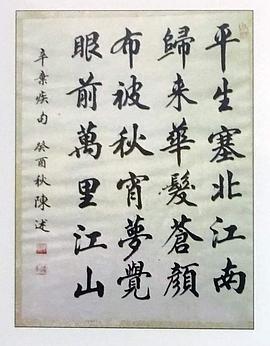 平生塞北江南
歸来華髮蒼顏
布被秋宵夢覺
眼前萬里江山
辛棄疾句 癸酉秋 陳述